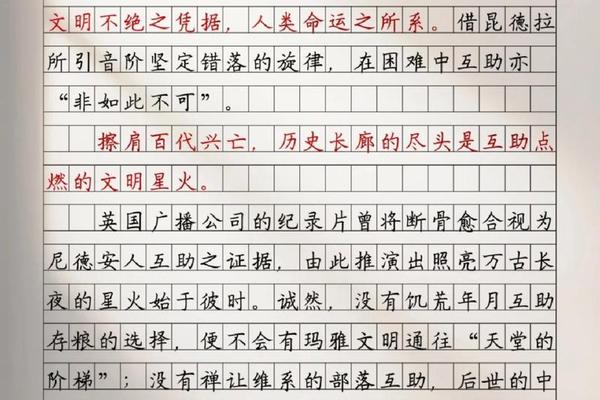 文明不绝之凭据，人类命运之所系。借昆德拉
所引音阶坚定错落的旋律，在困难中互助亦
“非如此不可”。
擦肩百代兴亡，历史长廊的尽头是互助点
燃的文明星火。
英国广播公司的纪录片曾将断骨愈合视为
尼德安人互助之证据，由此推演出照亮万古长
夜的星火始于彼时。诚然，没有饥荒年月互助
存粮的选择，便不会有玛雅文明通往“天堂的
阶梯”；没有禅让维系的部落互助，后世的中